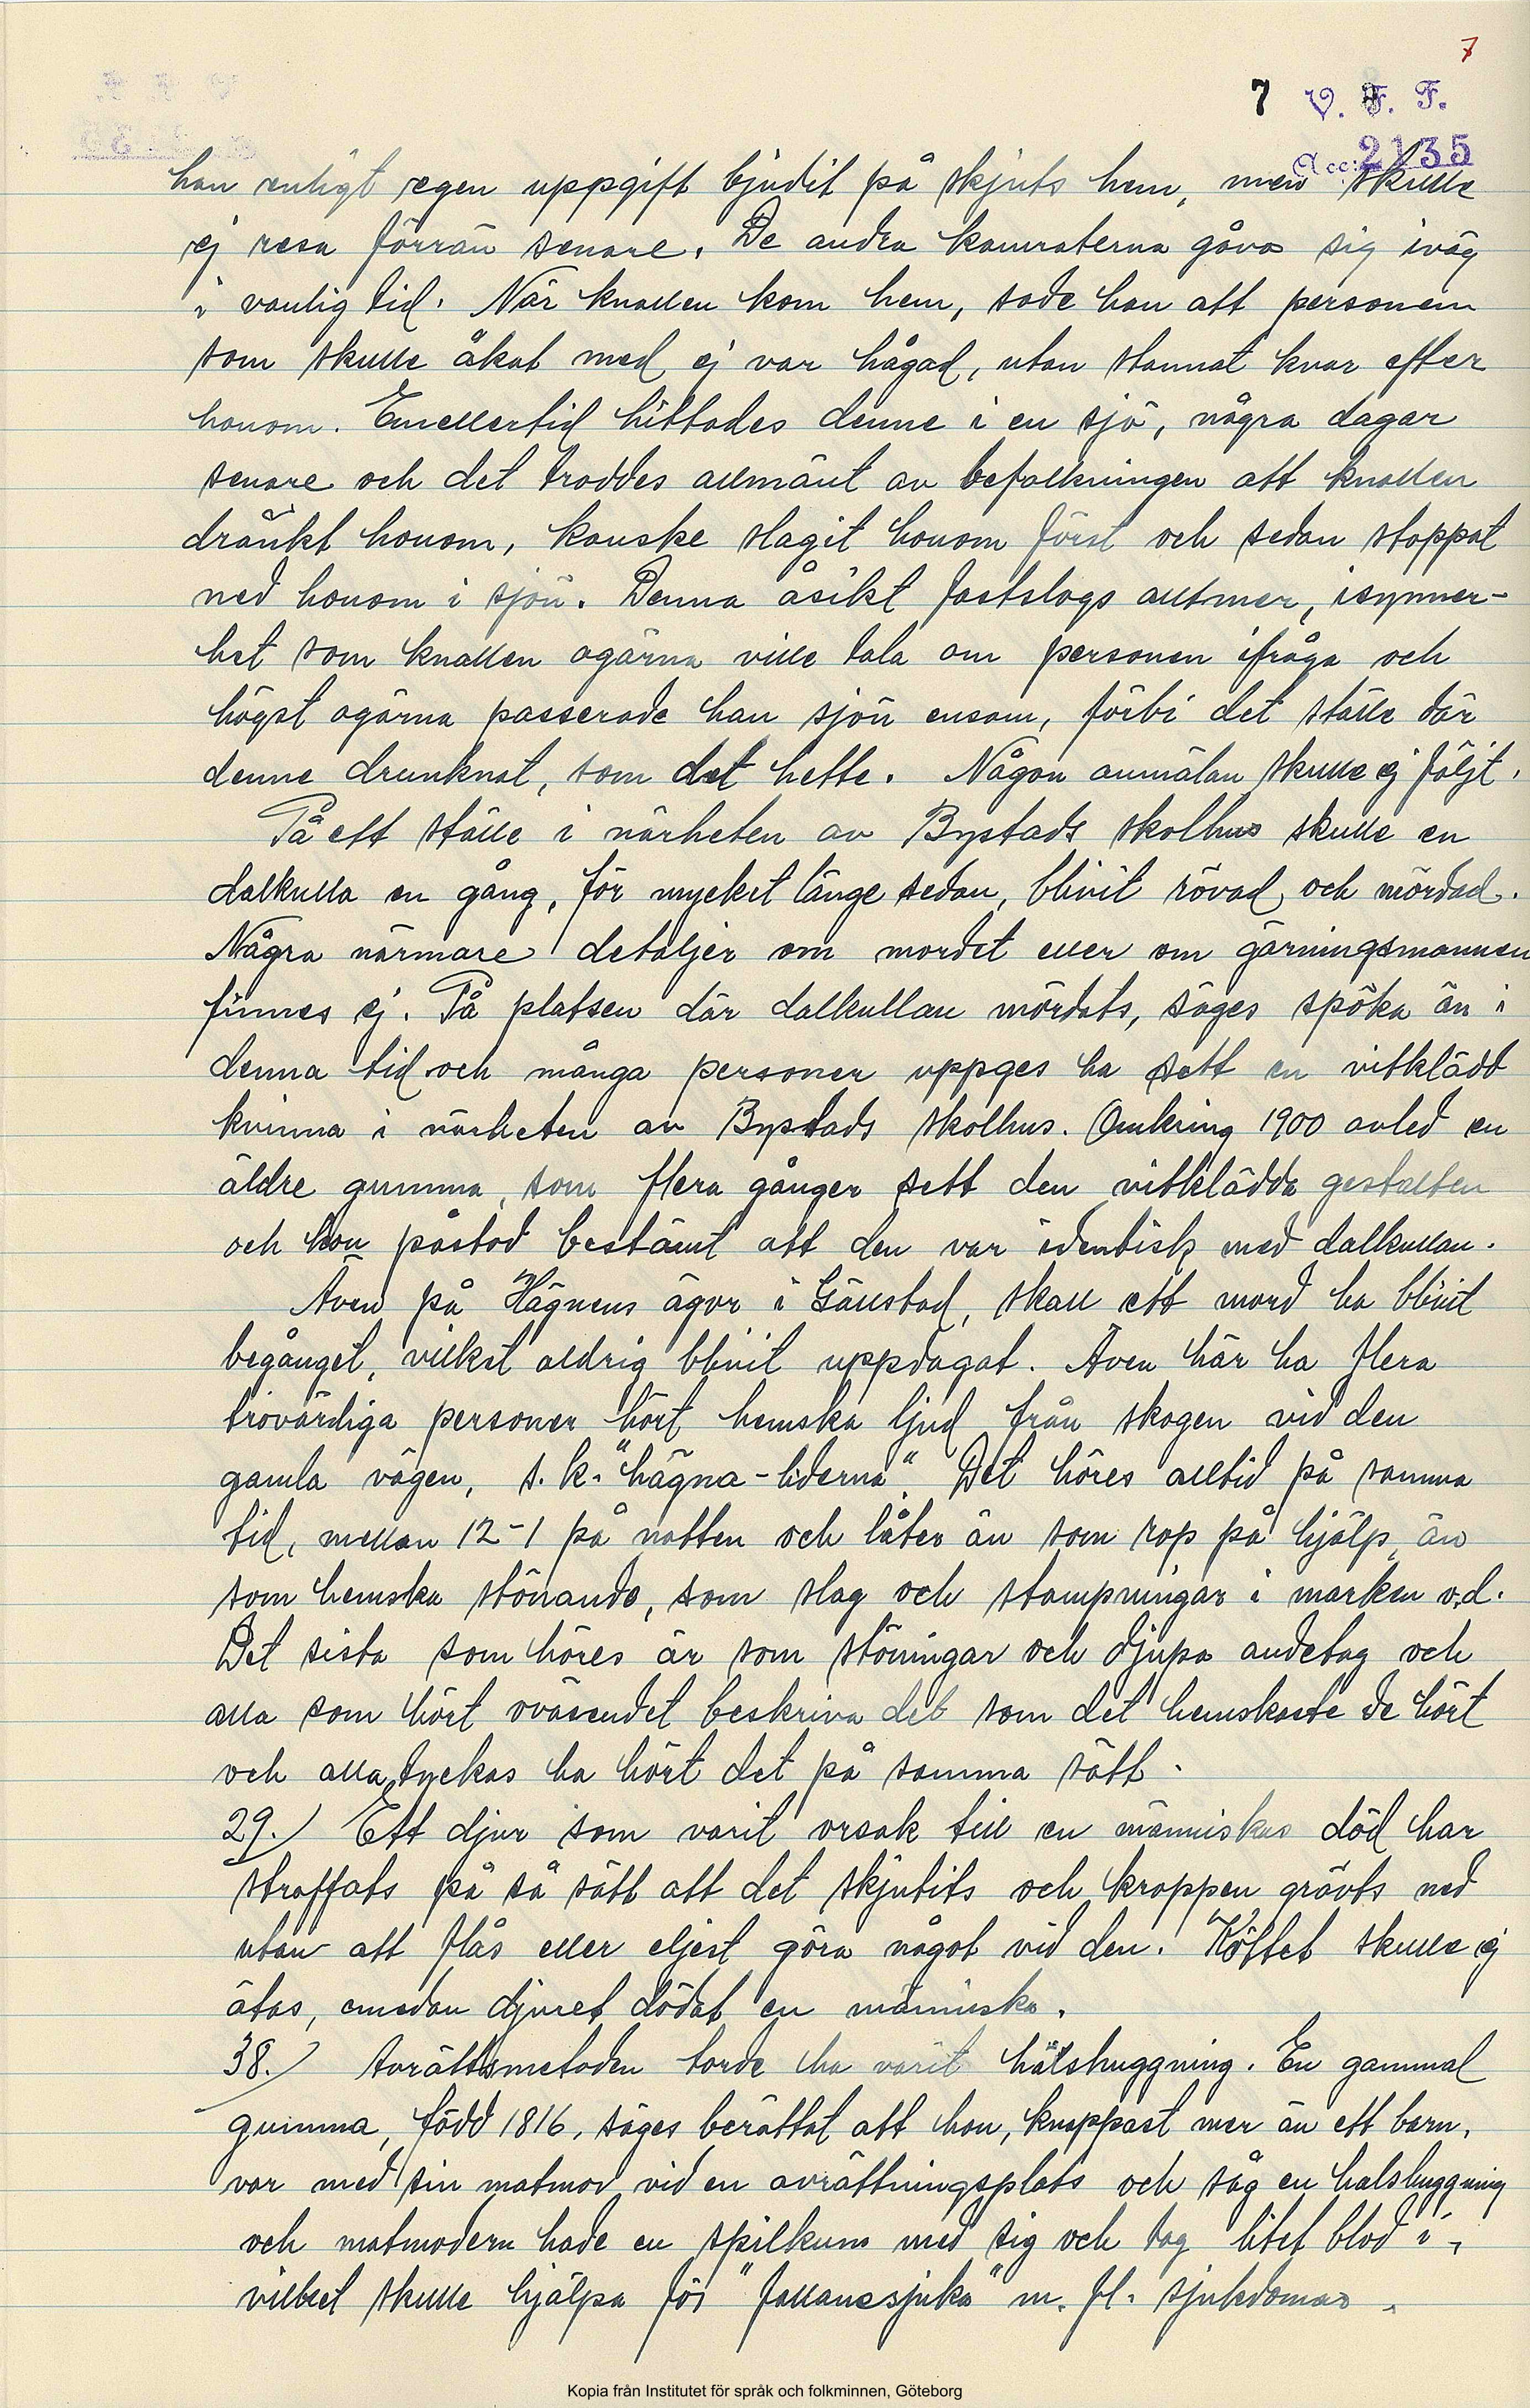 7
7 V. F. F.
Acc: 2135
han enligt egen uppgift bjudit på skjuts hem, men skulle
ej resa förrän senare. De andra kamraterna gåvo sig iväg
i vanlig tid. När knallen kom hem, sade han att personen
som skulle åkat med ej var hågad, utan stannat kvar efter
honom. Emellertid hittades denne i en sjö, några dagar
senare och det troddes allmänt av befolkningen att knallen
dränkt honom, kanske slagit honom först och sedan stoppat
ned honom i sjön. Denna åsikt fastslogs alltmer, isynner-
het som knallen ogärna ville tala om personen ifråga och
högst ogärna passerade han sjön ensam, förbi det ställe där
denne drunknat, som det hette. Någon anmälan skulle ej följt.
På ett ställe i närheten av Bystads skolhus skulle en
dalkulla en gång, för mycket länge sedan, blivit rövad och mördad.
Några närmare detaljer om mordet eller om gärningsmannen
finnes ej. På platsen där dalkullan mördats, säges spöka än i
denna tid och många personer uppges ha sett en vitklädd
kvinna i närheten av Bystads skolhus. Omkring 1900 avled en
äldre gumma, som flera gånger sett den vitklädda gestalten
och hon påstod bestämt att den var identisk med dalkullan.
Även på Hägnens ägor i Gällstad, skall ett mord ha blivit
begånget, vilket aldrig blivit uppdagat. Även här ha flera
trovärdiga personer hört hemska ljud från skogen vid den
gamla vägen, s.k. "hägna-liderna". Det höres alltid på samma
tid, mellan 12-1 på natten och låter än som rop på hjälp, än
som hemska stönande, som slag och stampningar i marken o.d.
Det sista som höres är som stöningar och djupa andetag och
alla som hört oväsendet beskriva det som det hemskaste de hört
och alla tyckas ha hört det på samma sätt.
29.) Ett djur som varit orsak till en människas död har
straffats på så sätt att det skjutits och kroppen grävts ned
utan att flås eller eljest göra något vid den. Köttet skulle ej
ätas, emedan djuret dödat en människa.
38.) Avrättsmetoden torde ha varit halshuggning. En gammal
gumma, född 1816, säges berättat att hon, knappast mer än ett barn,
var med sin matmor vid en avrättningsplats och såg en halshuggning
och matmodern hade en spilkum med sig och tag litet blod i,
vilket skulle hjälpa för "fallanesjuka" m. fl. sjukdomar.
Kopia från Institutet för språk och folkminnen, Göteborg